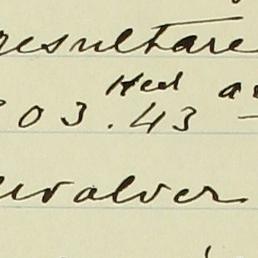 resultare
Hed av
303.43 –
evolver